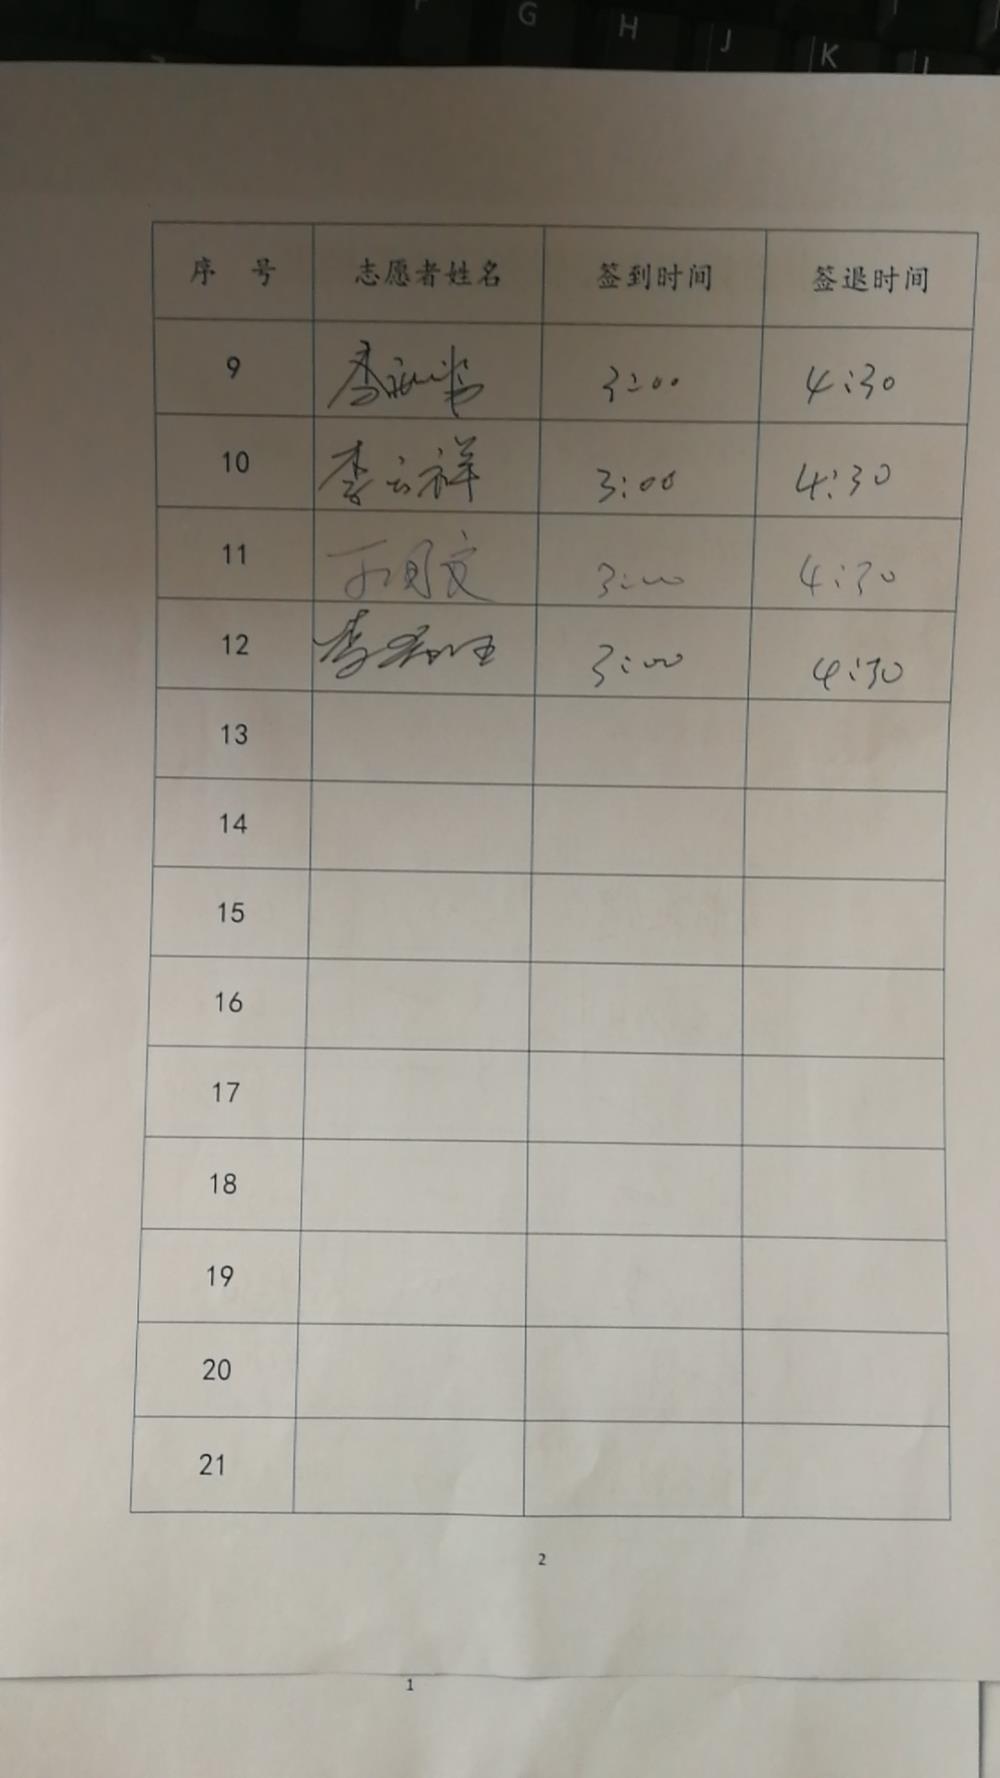 G H J K L
序 号 志愿者姓名 签到时间 签退时间
9 李 3:00 4:30
10 李云祥 3:00 4:30
11 3:00 4:30
12 李 3:00 4:30
13
14
15
16
17
18
19
20
21
2
1